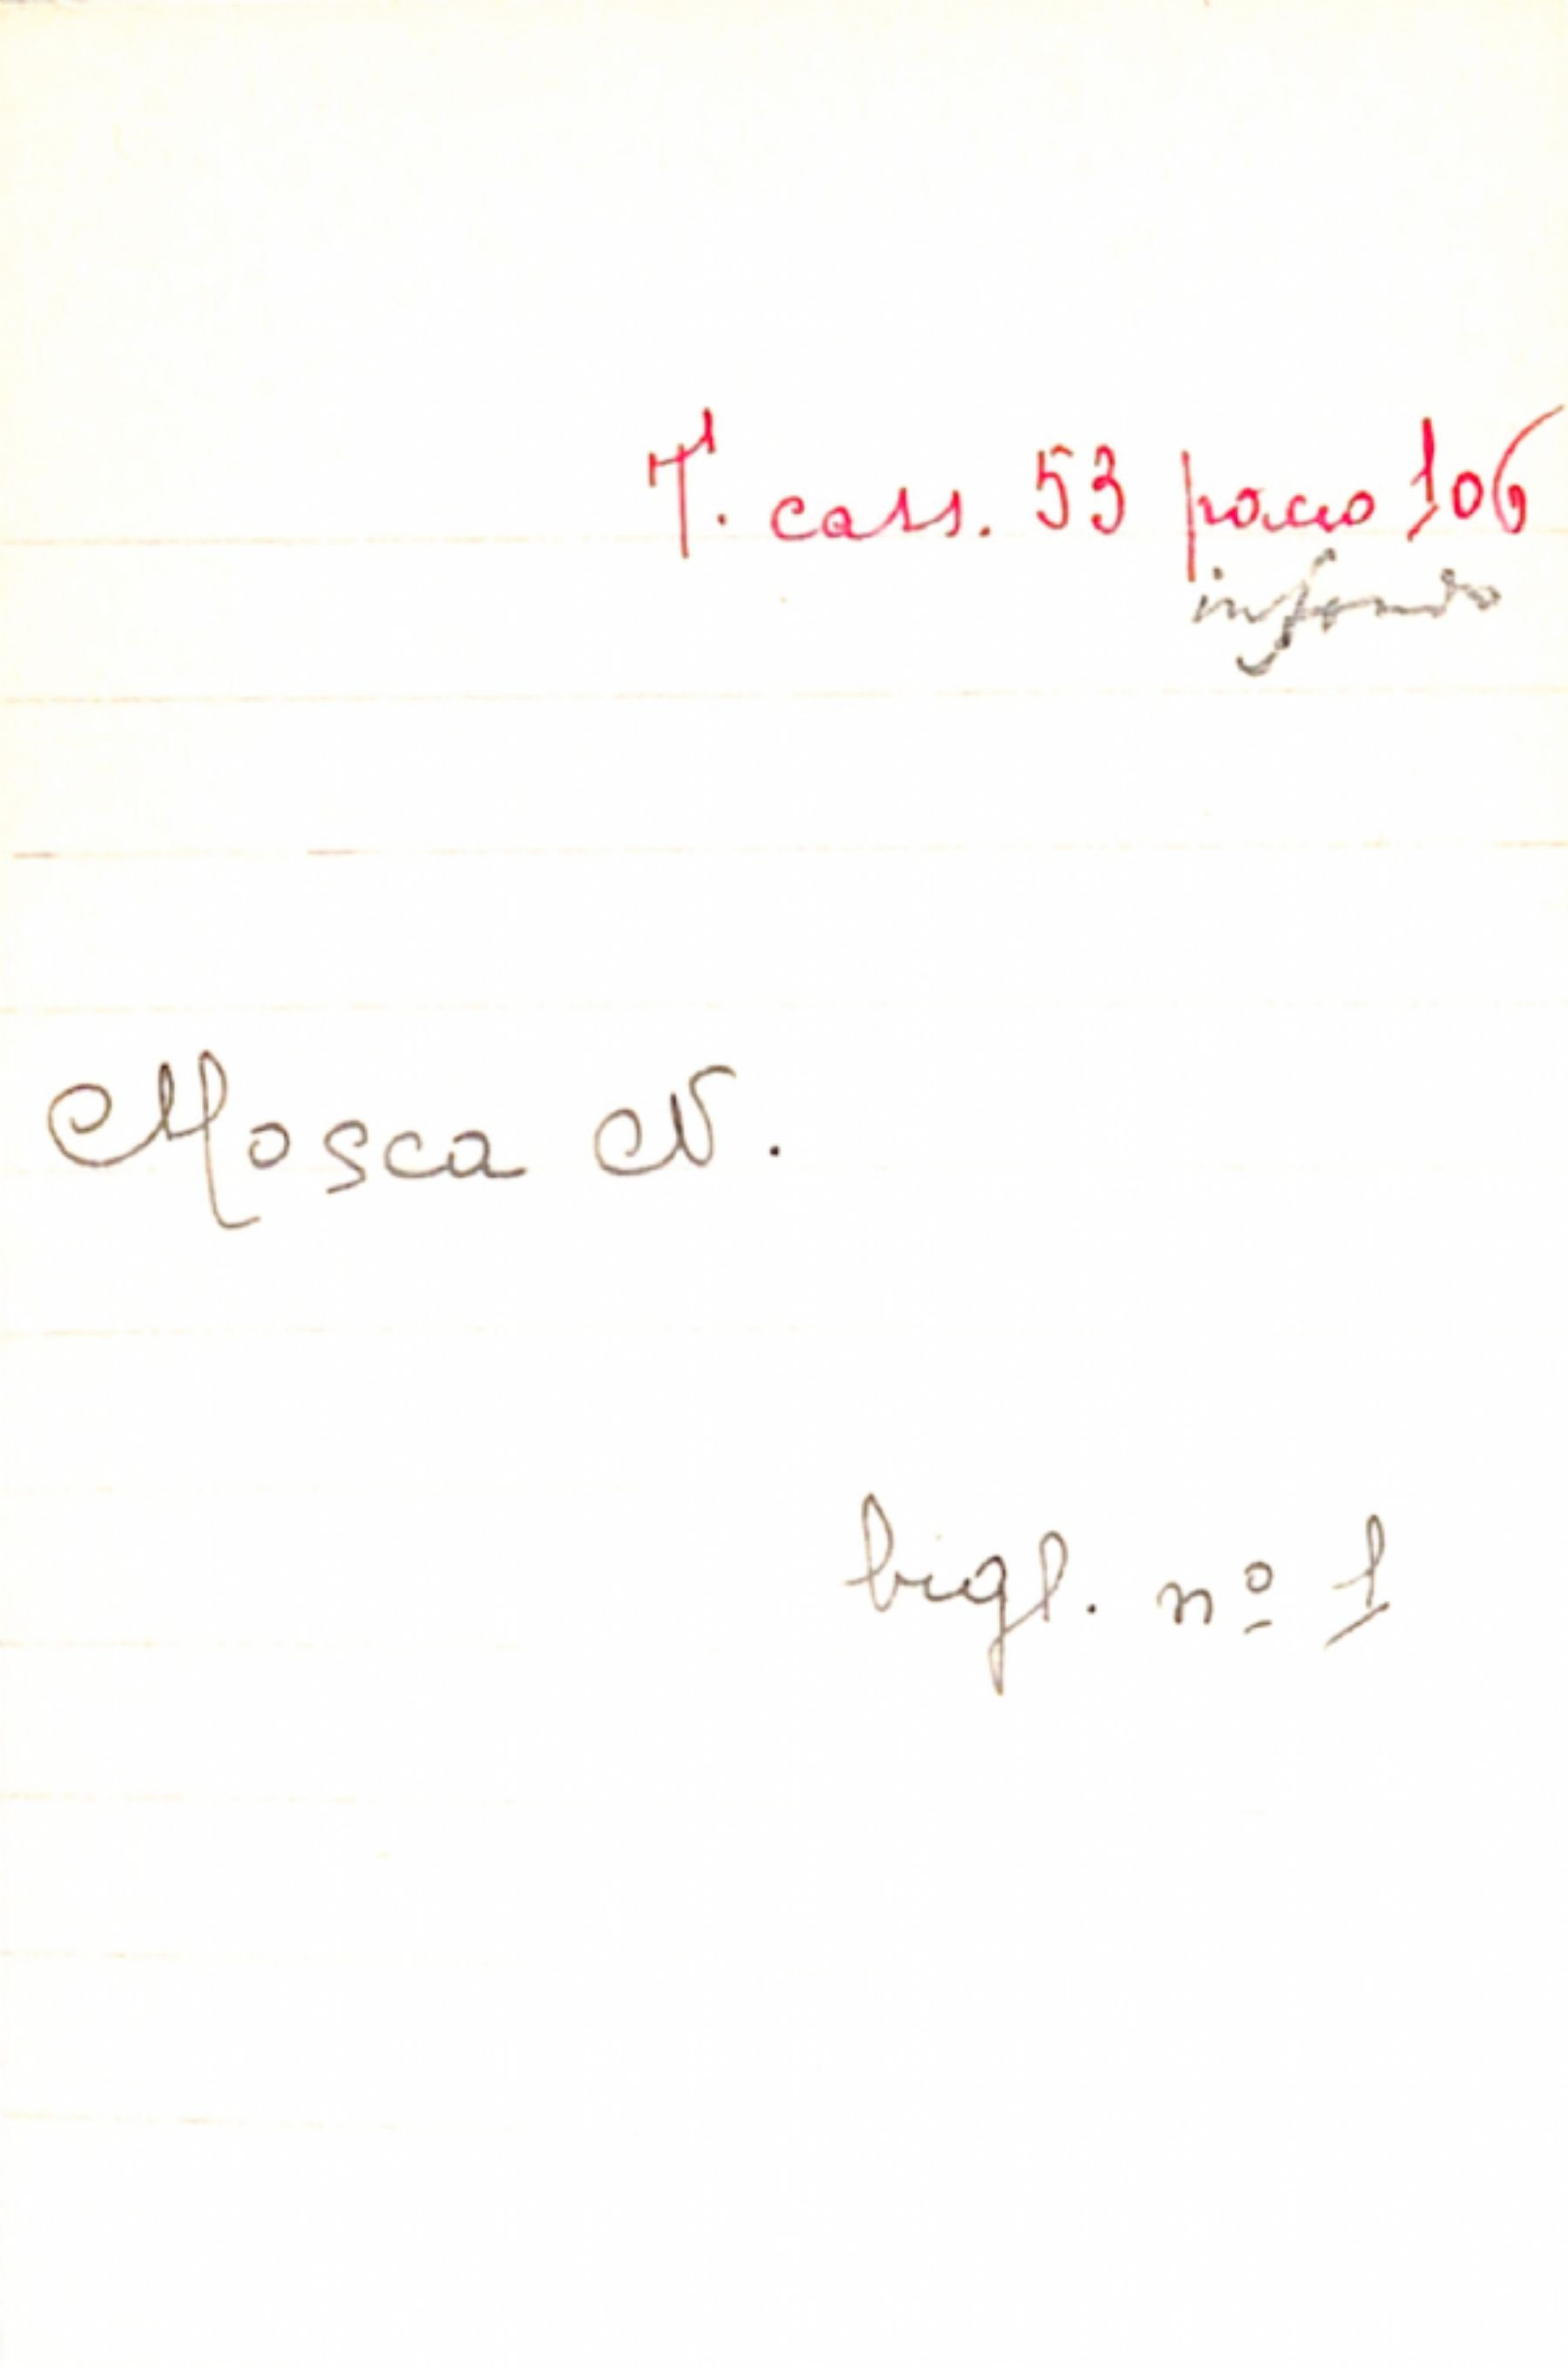 T. cass. 53 pacco 106
in fondo
Mosca N.
bigl. nº 1